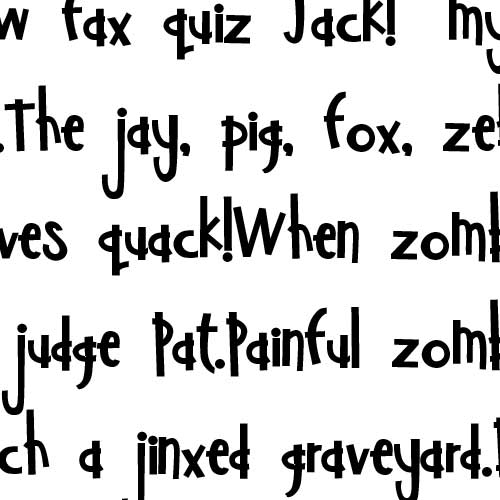 w fax quiz Jack! my
.The jay, pig, fox, ze
ves quack!When zom
judge Pat.Painful zom
ch a jinxed graveyard.